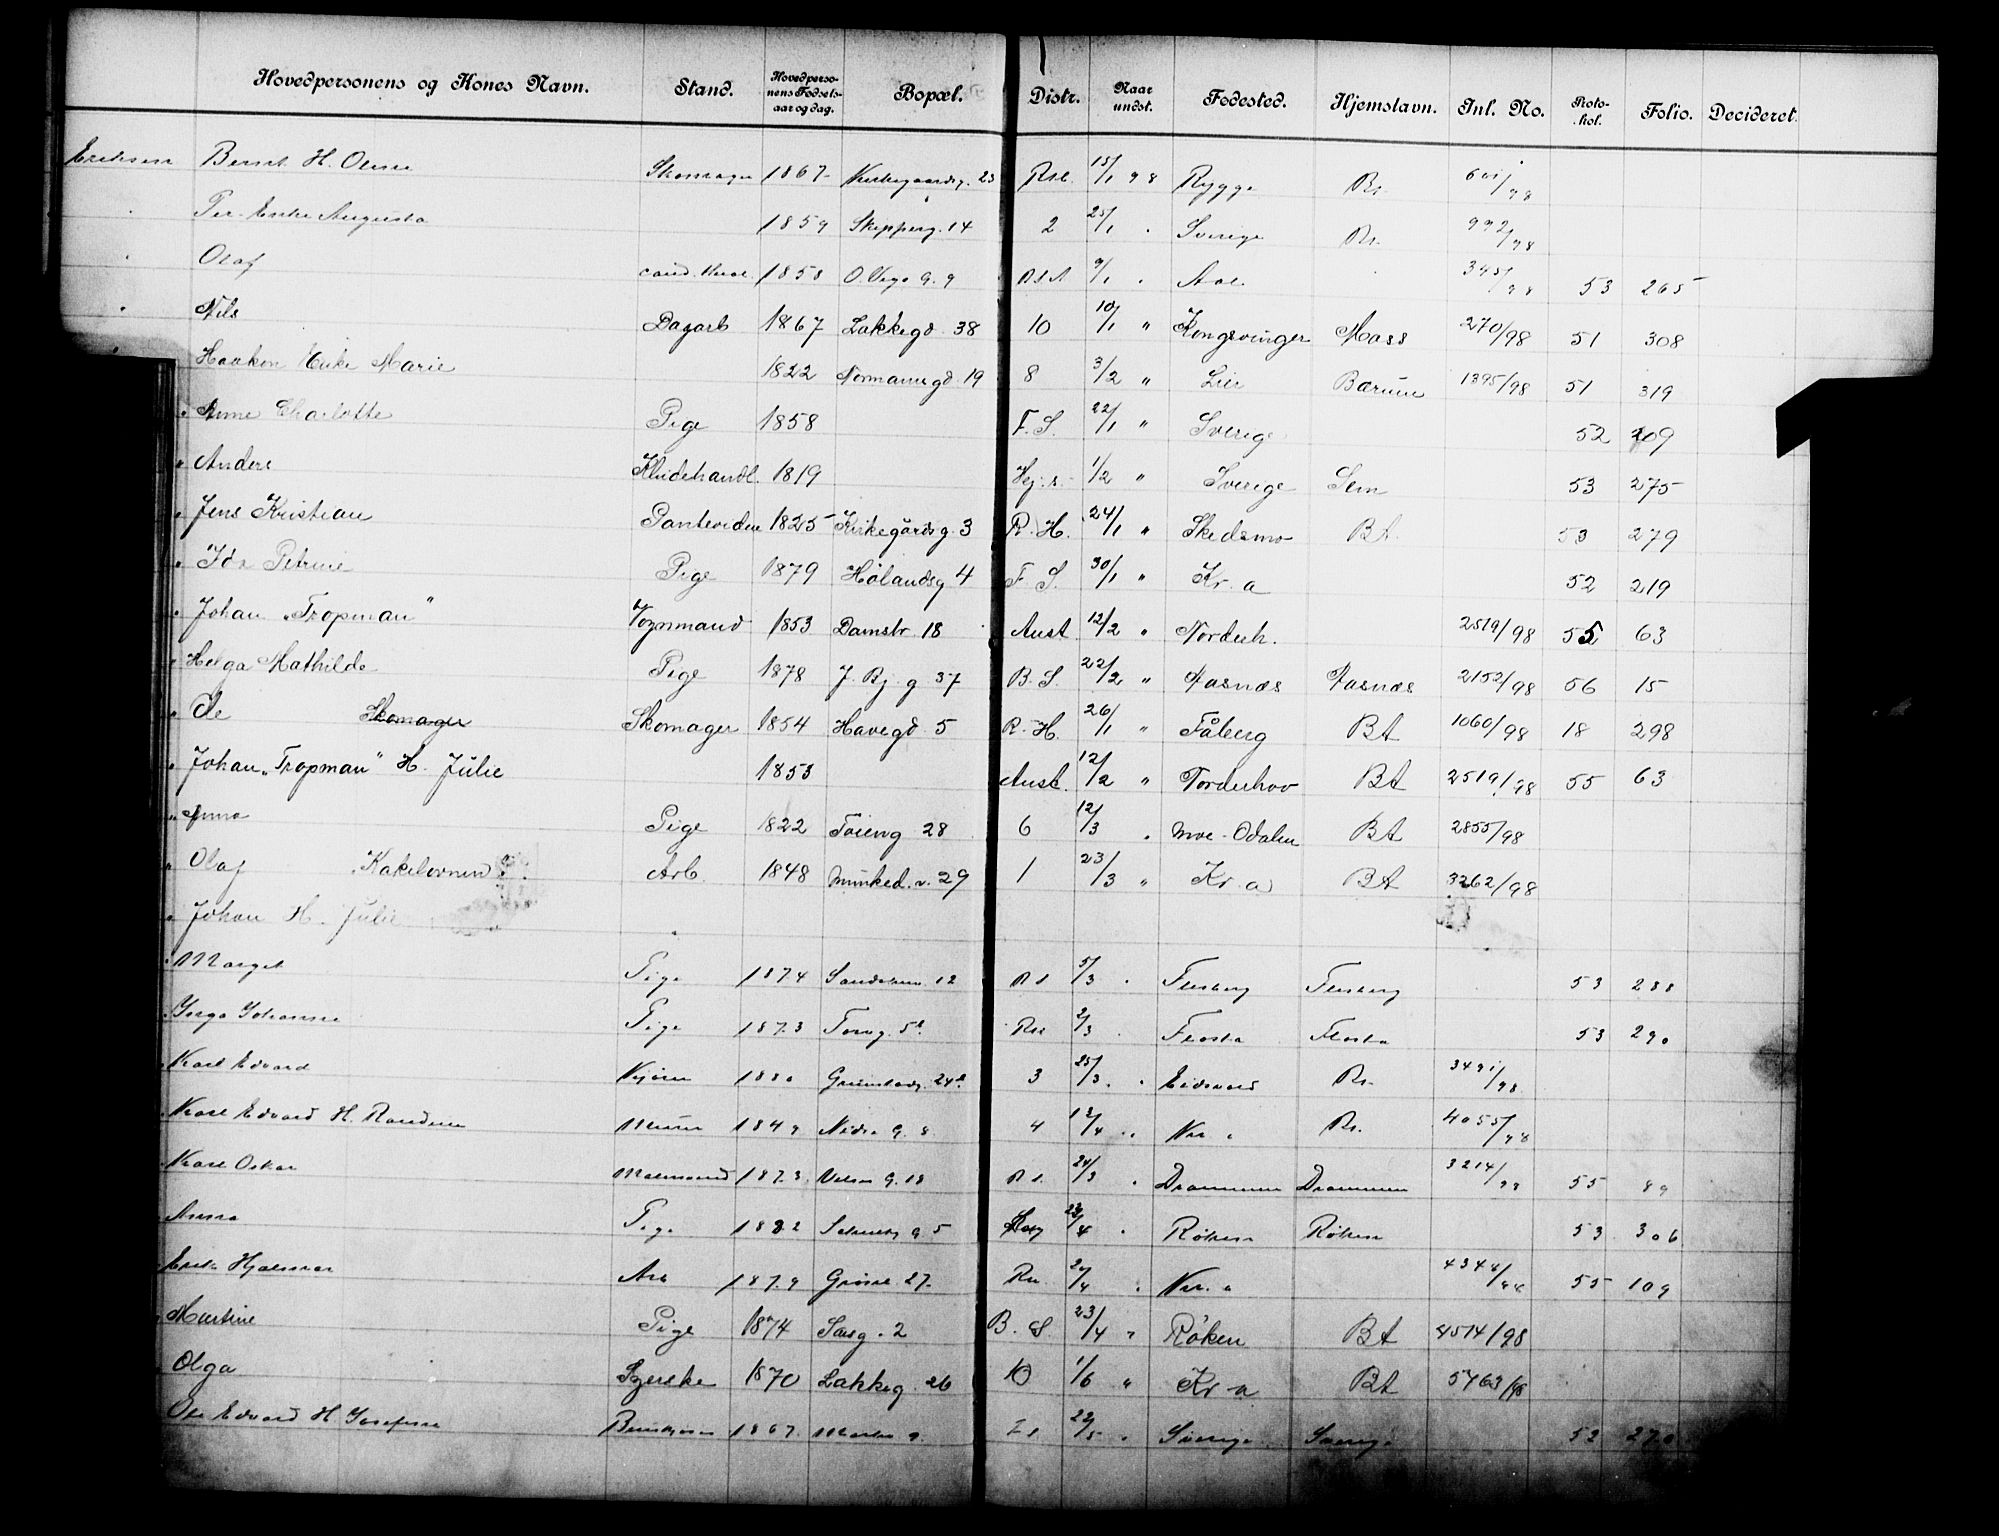 Hovedpersonens og Kones Navn. Stand. Hovedpersonens Fødselsaar og dag. Bopæl. Distr. Naar undst. Fødested. Hjemstavn. Inl. No. Protokol. Folio. Decideret.
Eriksen Bernt H. Oline Skomager 1867 Kirkegaardsg. 23 Rst. 15/1 98 Rygge Bt. 601/98
Per Enke Augusta 1859 Skipperg. 14 2 25/1 Sverige Bt. 992/98
Olaf cand. 1858 O. Vogs G. 9 9/1 345/98 53 265
Nils Dagarb 1867 Lakkegd. 38 10 10/1 " Kongsvinger Moss 270/98 51 308
Haakon Enke Marie 1822 Normannsgd. 19 8 3/2 " Lier Bærum 1395/98 51 319
" Anne Charlotte Pige 1858 F. S. 22/1 " Sverige 52 209
" Anders Kludehandl. 1819 Hj. s. 1/2 " Sverige Sem 53 275
" Jens Kristian 1825 Kirkegårdsg. 3 R. H. 24/1 " Skedsmo Bt. 53 279
" Ida Petrine Pige 1879 Hølandsg 4 F. S. 30/1 " Kr. a 52 219
" Johan "Tropman" Vognmand 1853 Damstr. 18 Aust 12/2 " Norderh. 2519/98 55 63
" Helga Mathilde Pige 1878 J. Bj. g 37 B. S. 22/2 " Aasnæs Aasnæs 2152/98 56 15
" Ole Skomager Skomager 1854 Havegd. 5 R. H. 26/1 " Fåberg Bt 1060/98 18 298
" Johan "Tropman" H. Julie 1853 Aust. 12/2 " Norderhov Bt 2519/98 55 63
" Anna Pige 1822 Tøieng 28 6 12/3 " Odalen Bt 2855/98
" Olaf "Kakelovnen" Arb. 1848 Munked. v. 29 1 23/3 " Kr. a Bt 3262/98
" Johan H. Julie
" Marget Pige 1874 12 5/3 " Flesberg Flesberg 53 288
" Inga Johanne Pige 1873 Torvg. 5 2/3 Flosta Flosta 53 290
" Karl Edvard 1880 Grünerløkg. 3 25/3 " Eidsvold Bt. 3491/98
" Karl Edvard H. Murer 1849 Nedre G. 8 4 12/4 " Kr. a Bt. 4055/98
" Karl Oskar 1873 G. 18 24/3 " Drammen Drammen 3214/98 55 89
" Anna Pige 1882 G 5 23/4 " Røken Røken 53 306
" Erik Hjalmar Arb 1879 27 /4 " Kr. a 4348/98 55 109
" Martine Pige 1874 2 B. S. 23/4 " Røken Bt 4514/98
" Olga Syerske 1870 Lakkeg. 26 10 1/6 " Kr. a Bt 5463/98
" Ole Edvard H. Josefine 1867 22/5 " Sverige Sverige 52 270